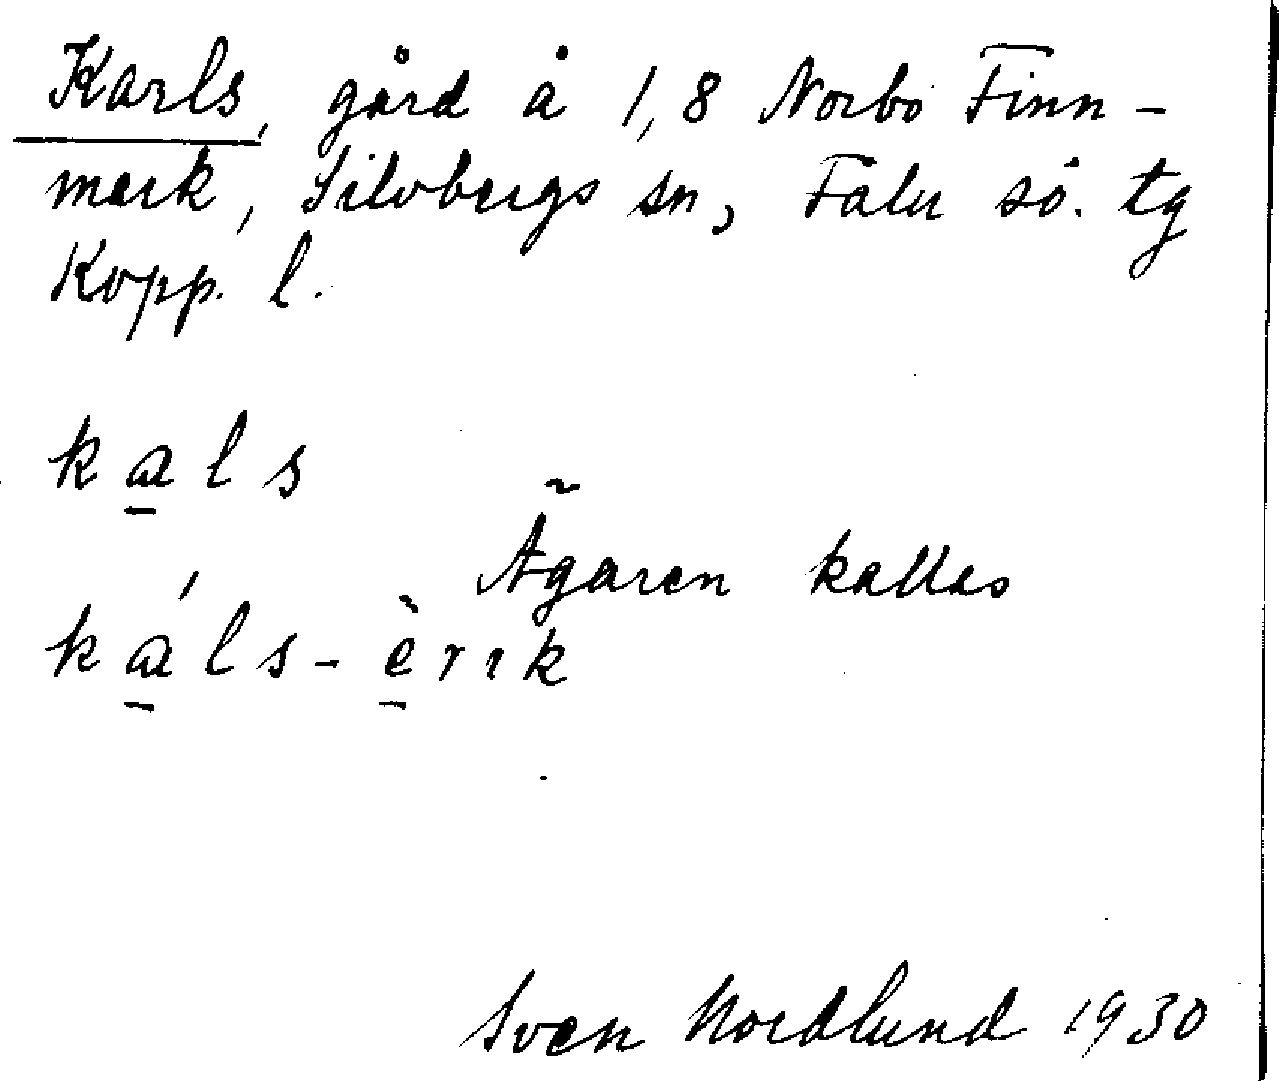 Karls, gård å 1,8 Norbo Finn-
mark, Silvbergs sn, Falu sö. tg
Kopp. l.
kals
Ägaren kallas
káls-èrik
Sven Nordlund 1930